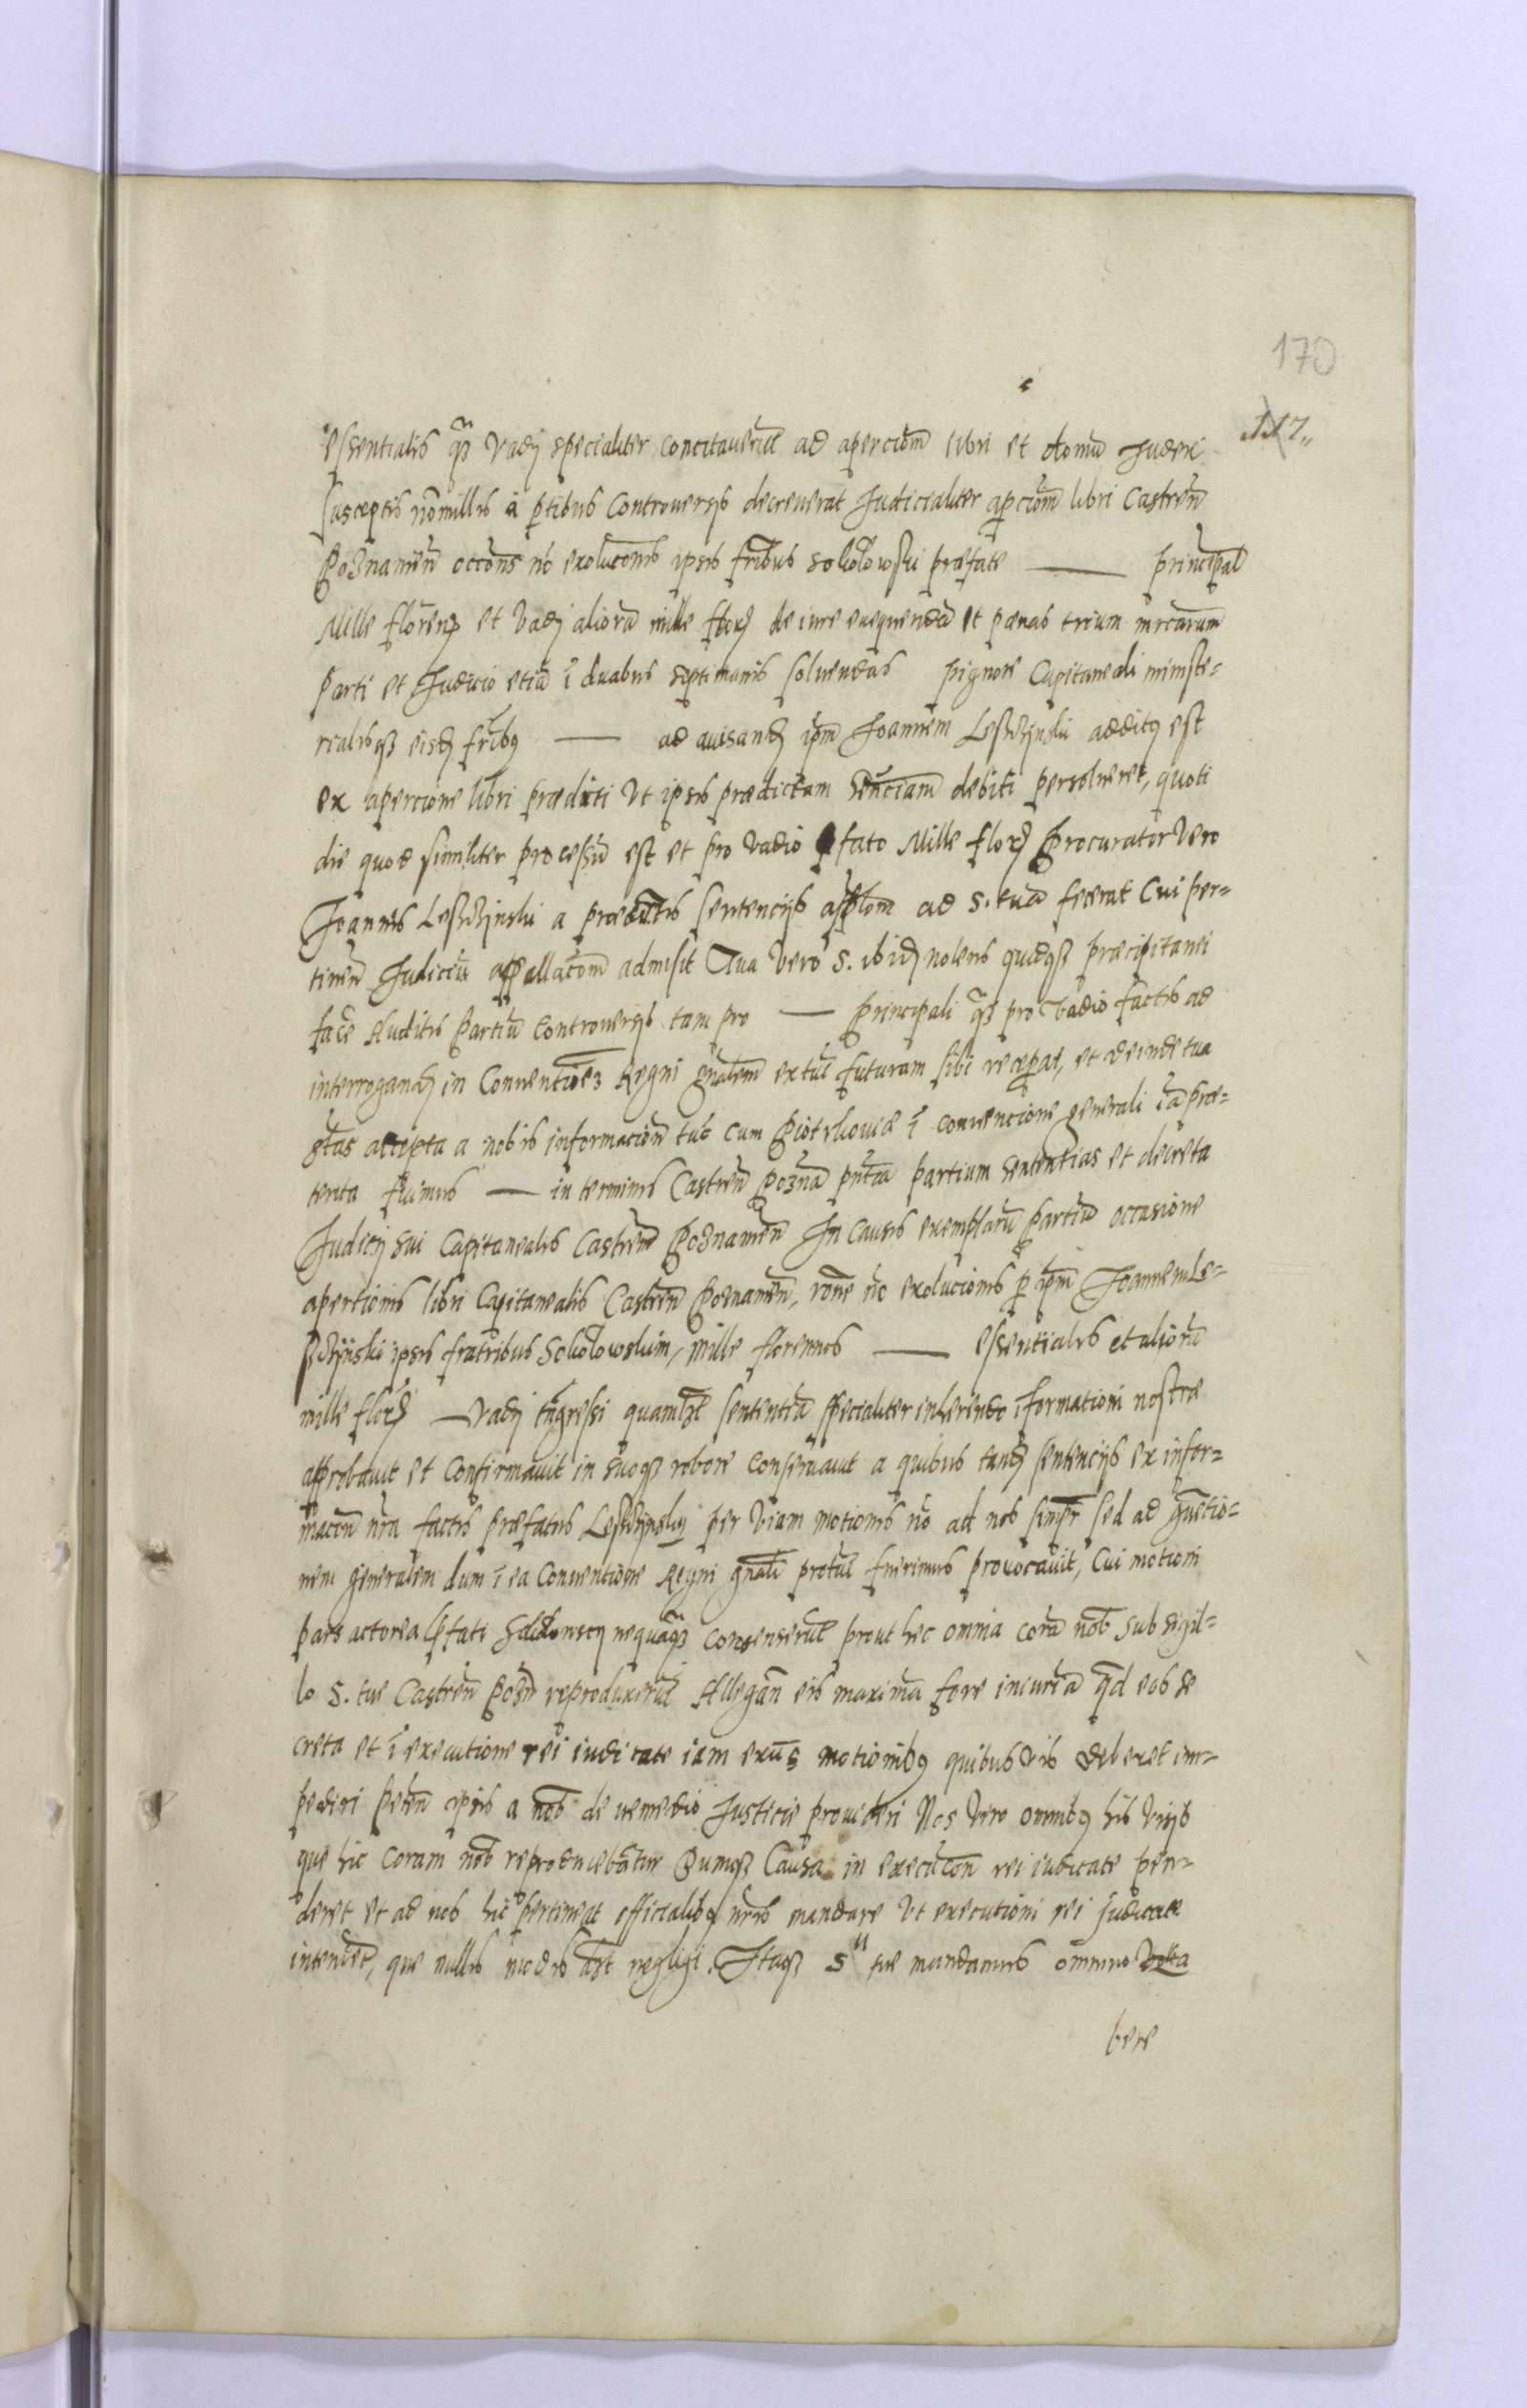 170
117
essentialis qz vadij specialiter concitauerūt ad aperciom libri et domū Judex
susceptis nōnullis a ptibus controuersijs decreuerat Judicialiter apciom libri Castreñ
Poznameñ occoñs nō exolucōnis ipsis fribus Sokołowski præfate — principal
Mille floreñ et vadij aliorū mille flor de iure exequendā et pænas trium mrcarum
parti et Judicio etiā ī duabus septimanis soluendas pignore Capitaneali ministe-
rialibqz eisd fribq — ad auisand ipm Joannem Leszczynski additq est
ex apercione libri prædicti vt ipsis prædictam senciam debiti persolueret, quoti
die quod similiter processū est et pro vadio pfato Mille flor Procurator vero
Joannis Leszczynski a prædictis sentencijs applom ad S. tuā fecerat cui per-
tineñ Judiciū appellacom admisit Tua vero S. ibid nolens quidqz præcipitanei
face Auditis Partiū controuersijs tam pro — principali qz pro vadio factis ad
interrogand in Conuentiōez Regni gnalem extūc futuram sibi recepat, et deinde tua
Stas accepta a nobis informacioñ tūc cum Piotrkouiæ ī conuencione generali iā præ-
terita fuimus — in terminis Castreñ Poznā pñtia partium sententias et decreta
Judicij sui Capitanealis Castreñ Poznameñ In causis exemplarū Partiū occasione
apertionis libri Capitanealis Castreñ Poznameñ, rōne nō exolucionis p ipm Joannem Le-
szczijnski ipsis fratribus Sokołowskim, mille florennos — essentialis et aliorū
mille flor — vadij ingressi quamlt sententiā specialiter inherendo īformationi nostræ
approbauit et confirmauit in suoqz robore conseruauit a quibus tand sentencijs ex infor-
macoñ nra factis præfatus Leszczynsky per viam motionis nō ad nos simpr sed ad quæstio-
nem generalem dum ī ea Conuentione Regni gnali protūc fuerimus prouocauit, Cui motioni
pars actorea pfati nequaqz consenserūt prout hec omnia corā nob sub sigil-
lo S. tue Castreñ Pozñ reproduxerūt Allegañ eis maximā fore iniuriā qd eos se
creta et ī executione rei iudicate iam exūs motionibq quibusvis deberet im-
pediri Peteñ ipsis a nob de remedio Justicie prouideri Nos vero omnibq his visis
que hic coram nob reproducebātur Cumqz Causa in executioñ rei iudicate pen-
deret et ad nos hic pertineat officialibq nris mandare vt executioni rei Judicate
intendēt, que nullis modis dēt negligi. Itaqz S tue mandamus omnino
bere